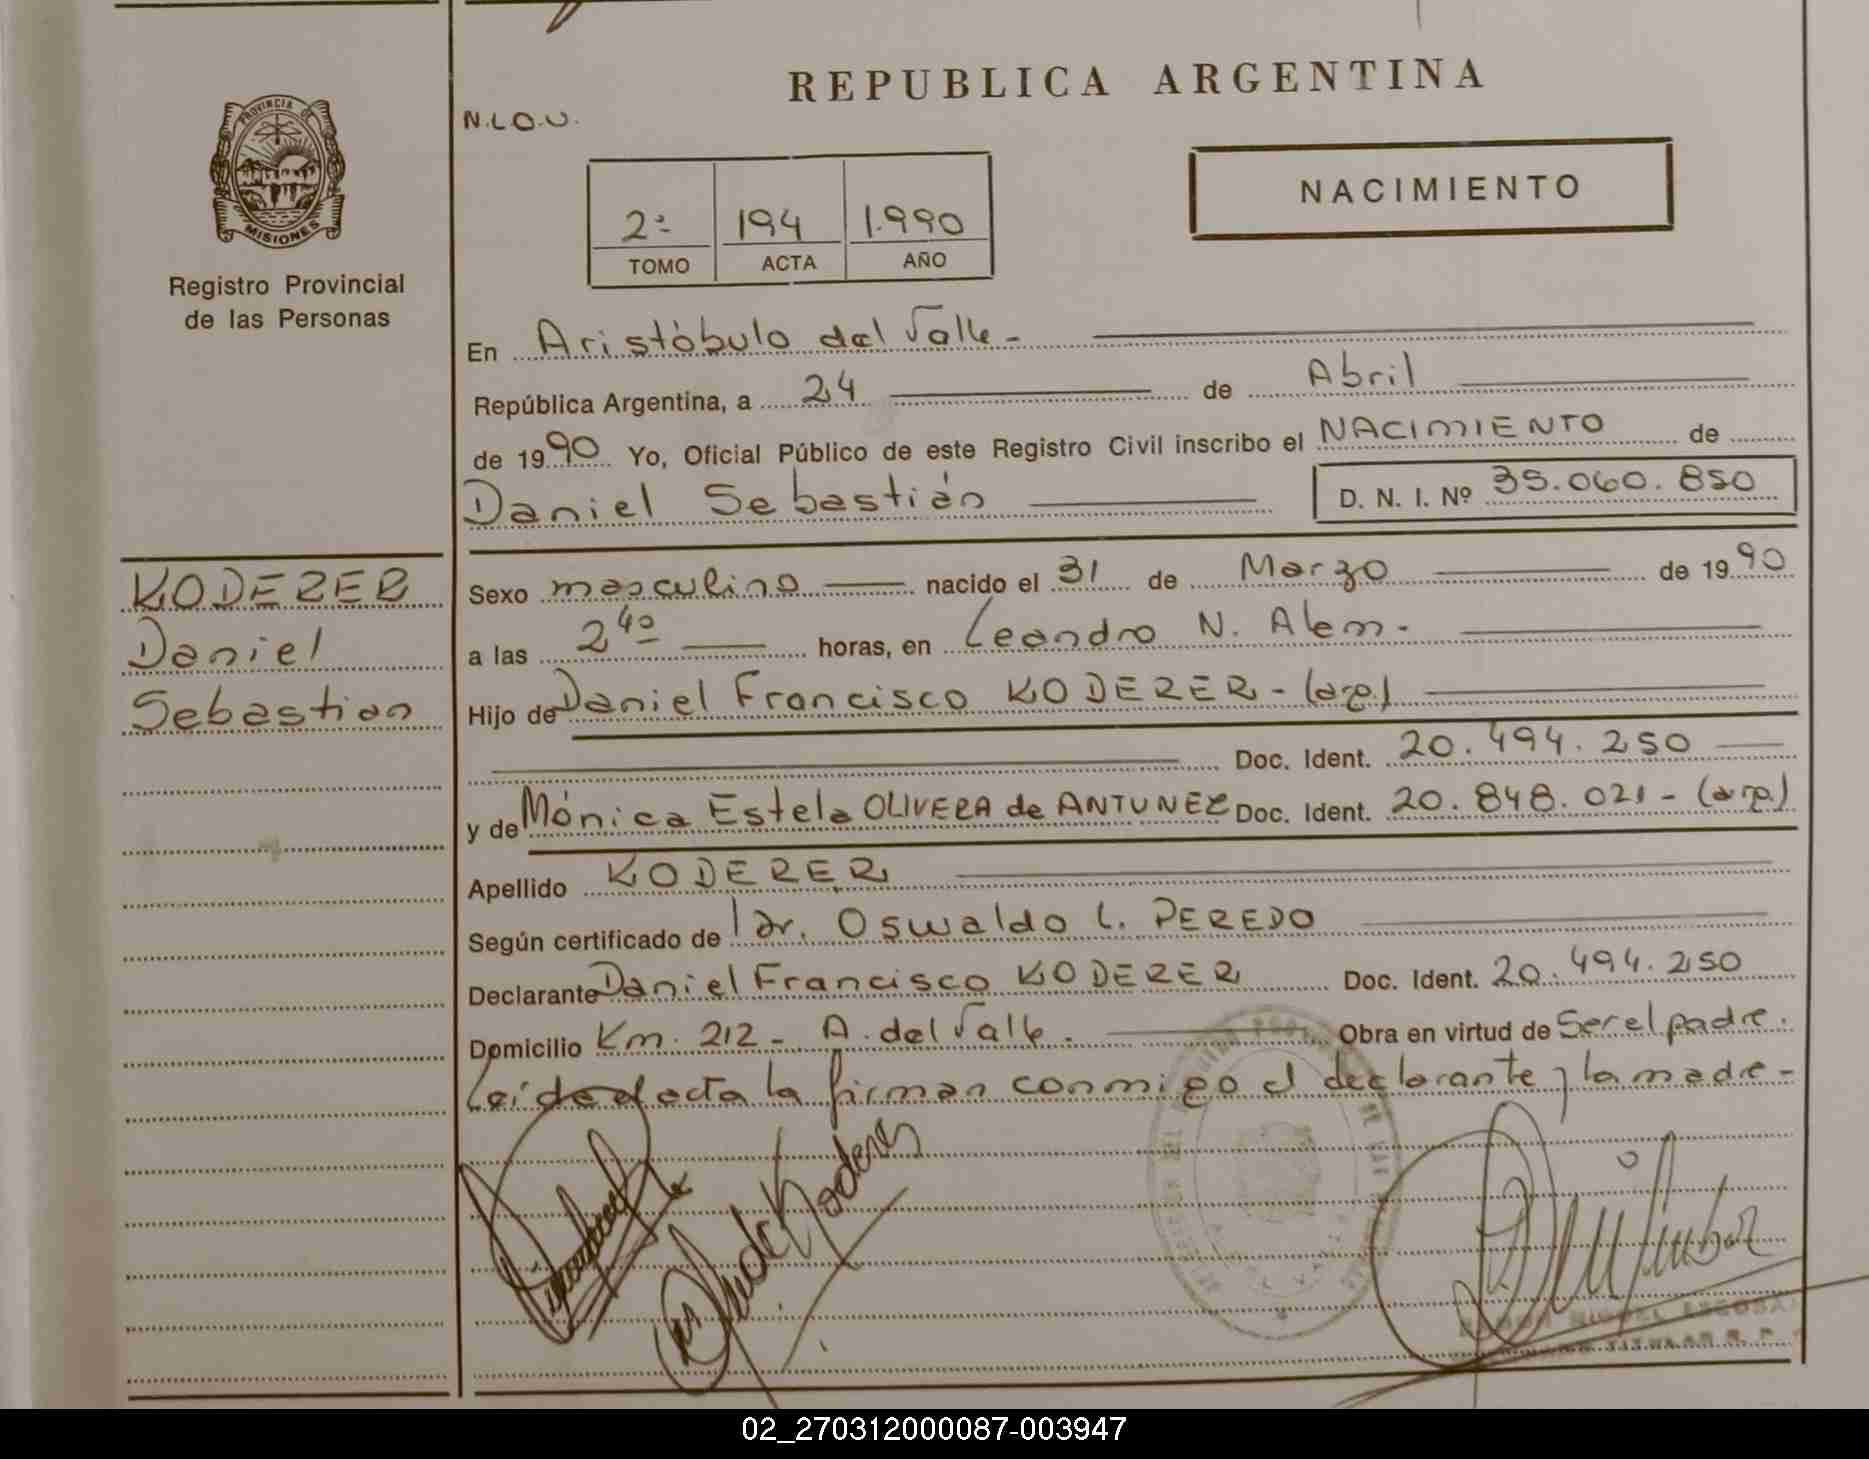 REPUBLICA ARGENTINA
N.L.O.U.
PROVINCIA DE
MISIONES
Registro Provincial
de las Personas
2º 194 1.990
TOMO ACTA AÑO
NACIMIENTO
En Aristóbulo del Valle -
República Argentina, a 24 de Abril
de 1990 Yo, Oficial Público de este Registro Civil inscribo el NACIMIENTO de
Daniel Sebastián D. N. I. Nº 35.060.850
KODERER
Daniel
Sebastian
Sexo masculino nacido el 31 de Marzo de 1990
a las 2 40 horas, en Leandro N. Alem.
Hijo de Daniel Francisco KODERER - (arg.)
Doc. Ident. 20.494.250
y de Mónica Estela OLIVERA de ANTUNEZ Doc. Ident. 20.848.021 - (arg.)
Apellido KODERER
Según certificado de Dr. Oswaldo L. PEREDO
Declarante Daniel Francisco KODERER Doc. Ident. 20.494.250
Domicilio Km. 212 - A. del Valle. Obra en virtud de Ser el padre.
Leída el acta la firman conmigo el declarante y la madre -
Koderer
MIGUEL
TITULAR R. P.
02_270312000087-003947